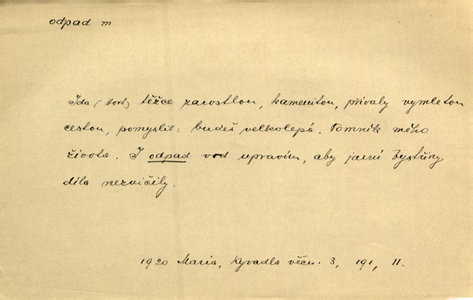 odpad m
Jda (tov.) těžce zarostlou, kamenitou, přívaly vymletou
cestou, pomyslil: budeš velkolepé. Pomník mého
života. I odpad vod upravím, aby jarní bystřiny
díla nezničily.
1920 Maria, Kyvadlo věčn. 3, 191, 11.